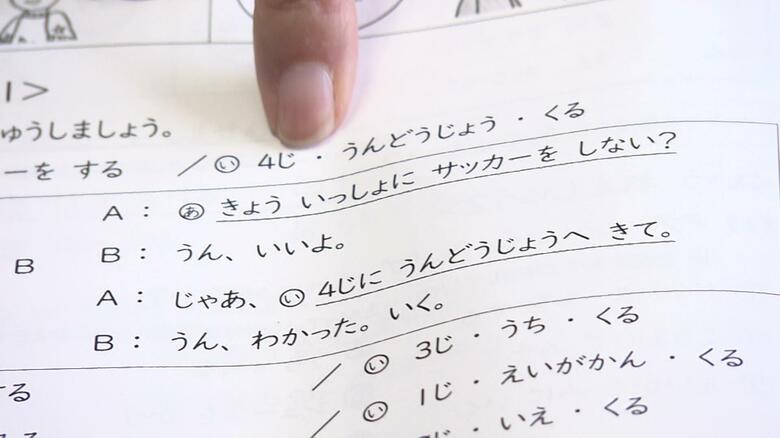 1>
ゅうしましょう。
ーを する ／㋑ 4じ ・ うんどうじょう ・ くる
A： ㋐ きょう いっしょに サッカーを しない？
B
B： うん、いいよ。
A： じゃあ、㋑ 4じに うんどうじょうへ きて。
B： うん、わかった。いく。
／ ㋑ 3じ ・ うち ・ くる
する
／ ㋑ 1じ ・ えいがかん ・ くる
じ ・ いえ ・ くる